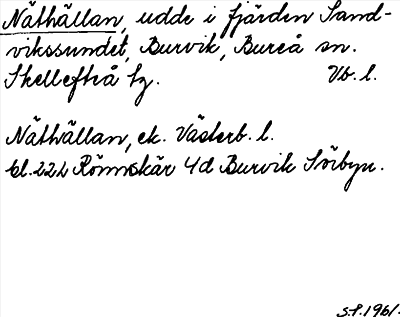 Näthällan, udde i fjärden Sand-
vikssundet, Burvik, Bureå sn.
Skellefteå tg. Vb. l.
Näthällan, ek. Västerb. l.
bl. 222 Rönnskär 4d Burvik Sörbyn.
S.P. 1961.